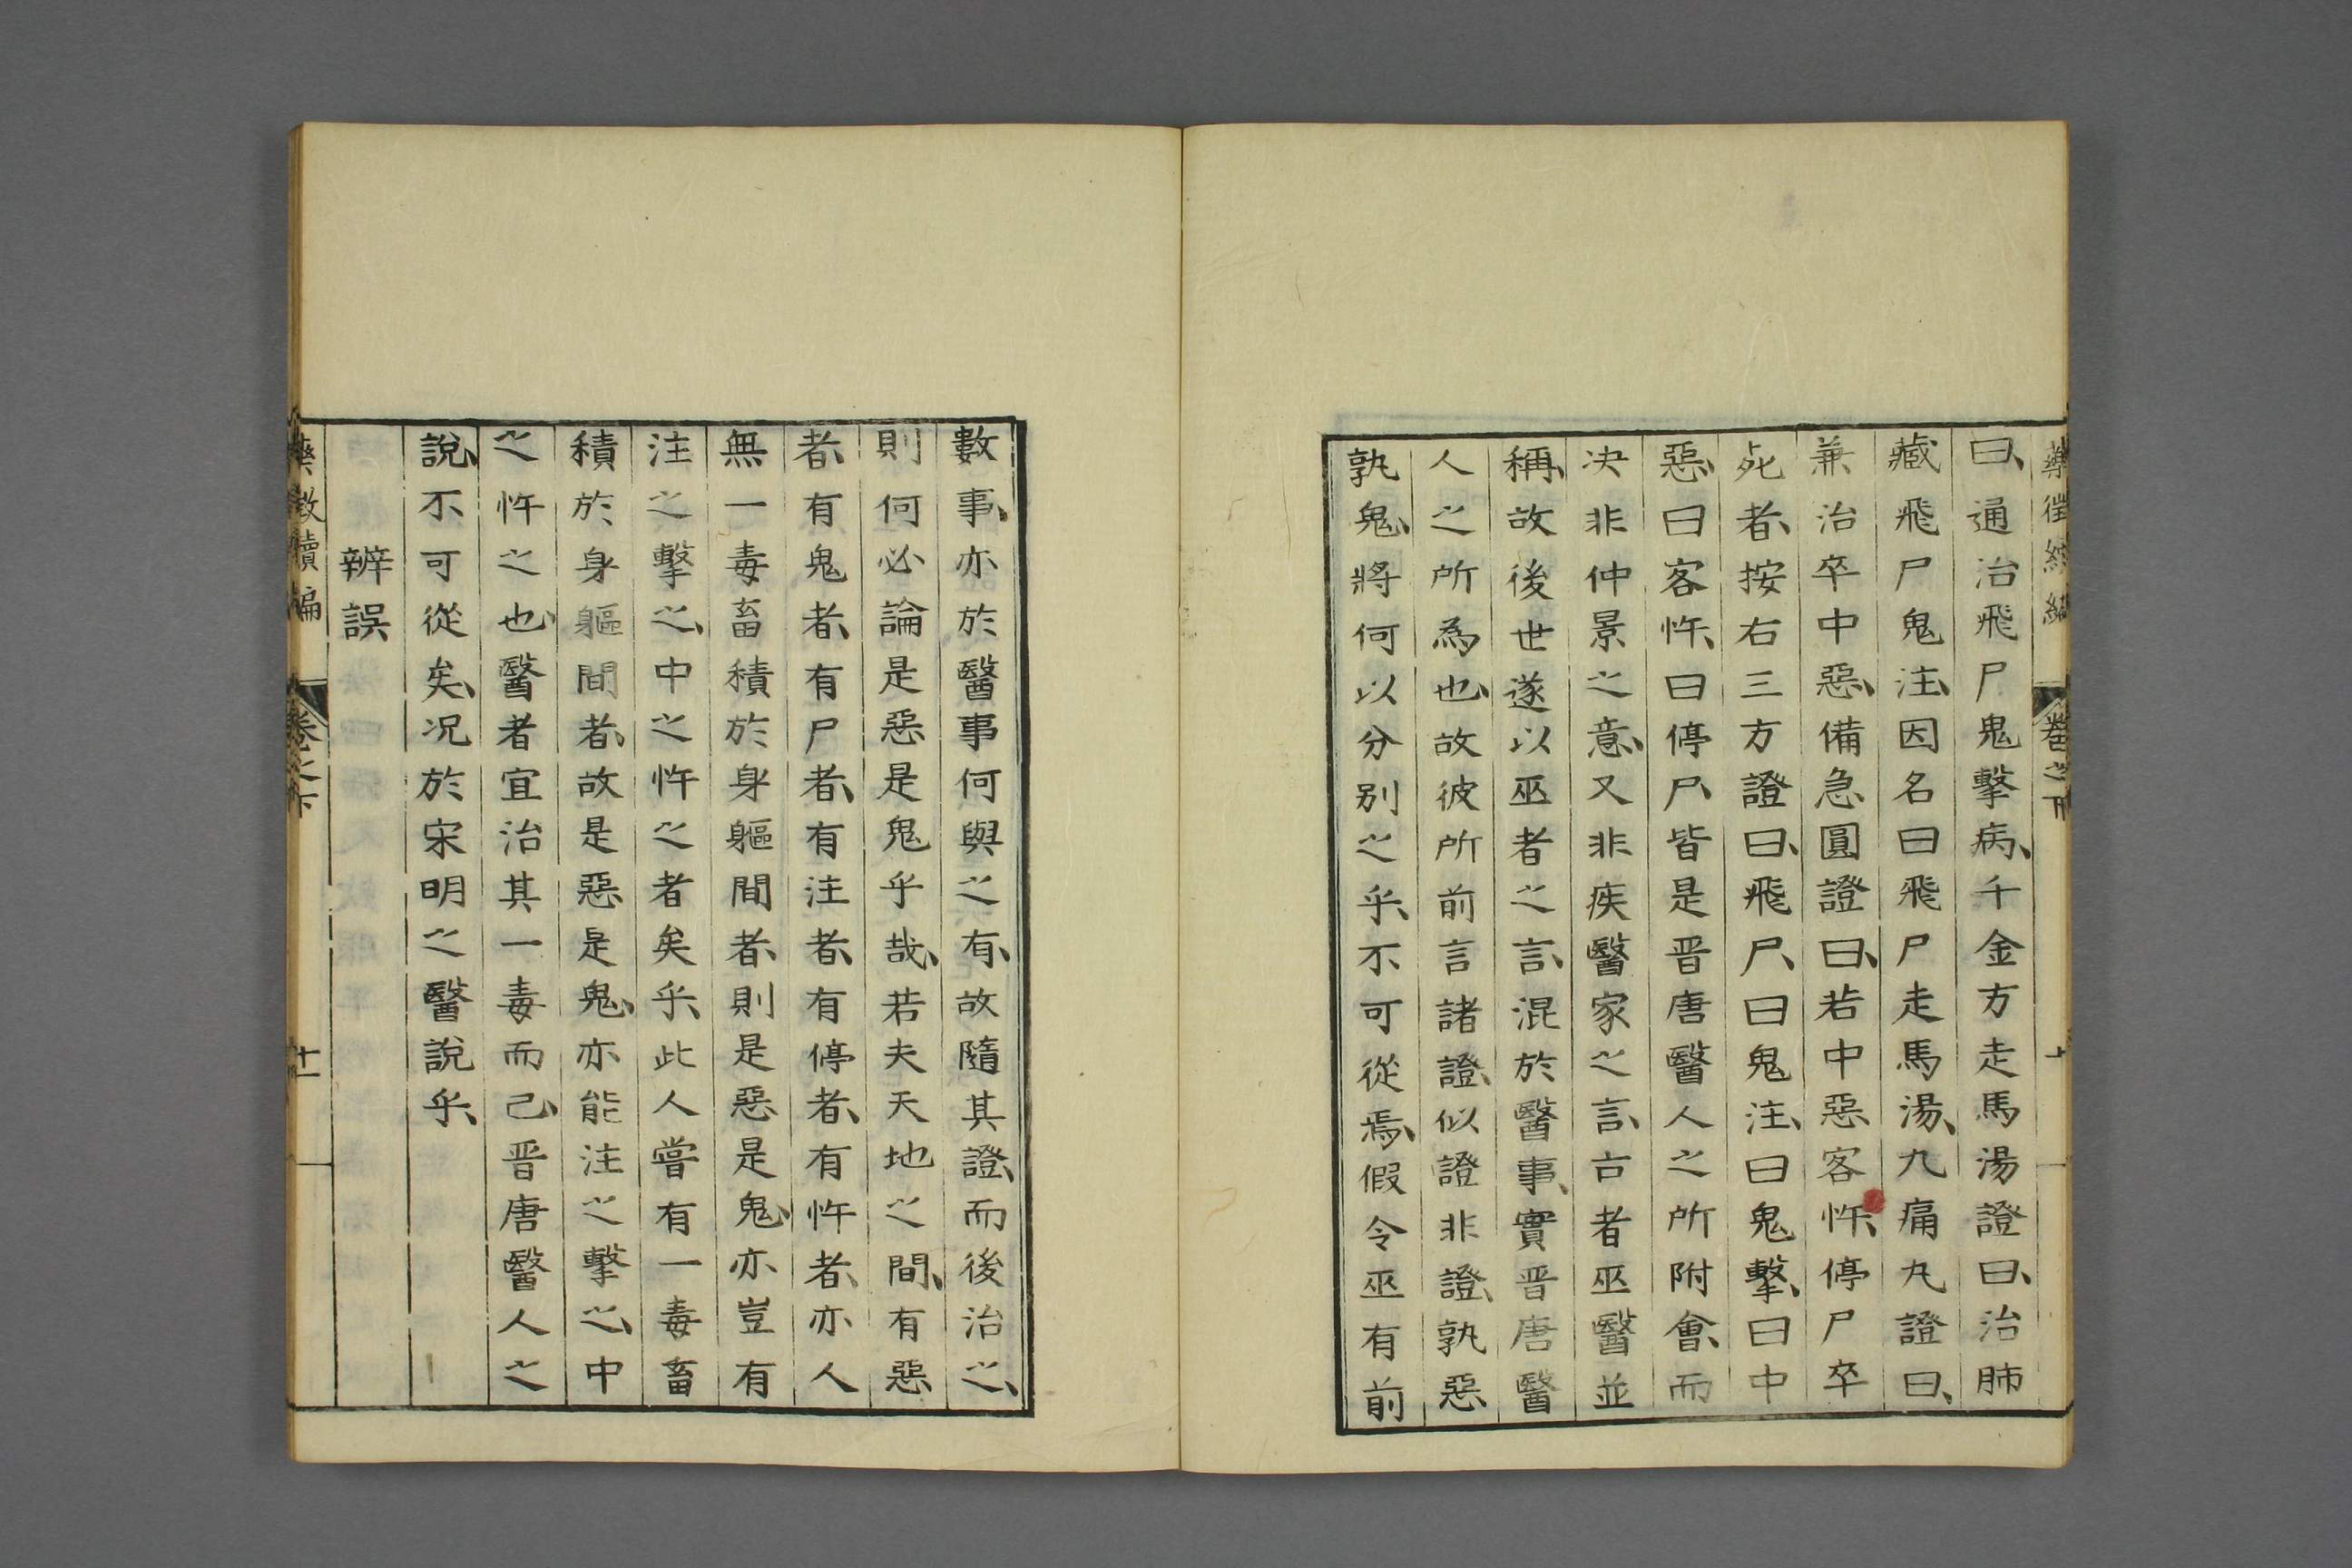 藥徵續編 卷之下 十
曰、通治飛尸鬼擊病、千金方走馬湯證曰、治肺
藏飛尸鬼注、因名曰飛尸走馬湯、九痛丸證曰、
兼治卒中惡、備急圓證曰、若中惡客忤、停尸卒
死者、按右三方證曰、飛尸、曰鬼注、曰鬼擊、曰中
惡、曰客忤、曰停尸、皆是晉唐醫人之所附會、而
决非仲景之意、又非疾醫家之言、古者巫醫並
稱、故後世遂以巫者之言、混於醫事、實晉唐醫
人之所為也、故彼所前言諸證、似證非證、孰惡
孰鬼、將何以分别之乎、不可從焉、假令巫有前
數事、亦於醫事何與之有、故隨其證、而後治之、
則何必論是惡是鬼乎哉、若夫天地之間、有惡
者、有鬼者、有尸者、有注者、有停者、有忤者、亦人
無一毒畜積於身軀間者、則是惡是鬼、亦豈有
注之擊之、中之忤之者矣乎、此人嘗有一毒畜
積於身軀間者、故是惡是鬼、亦能注之擊之、中
之忤之也、醫者宜治其一毒而已、晉唐醫人之
說、不可從矣、况於宋明之醫說乎、
辨誤
藥徵續編 卷之下 十一